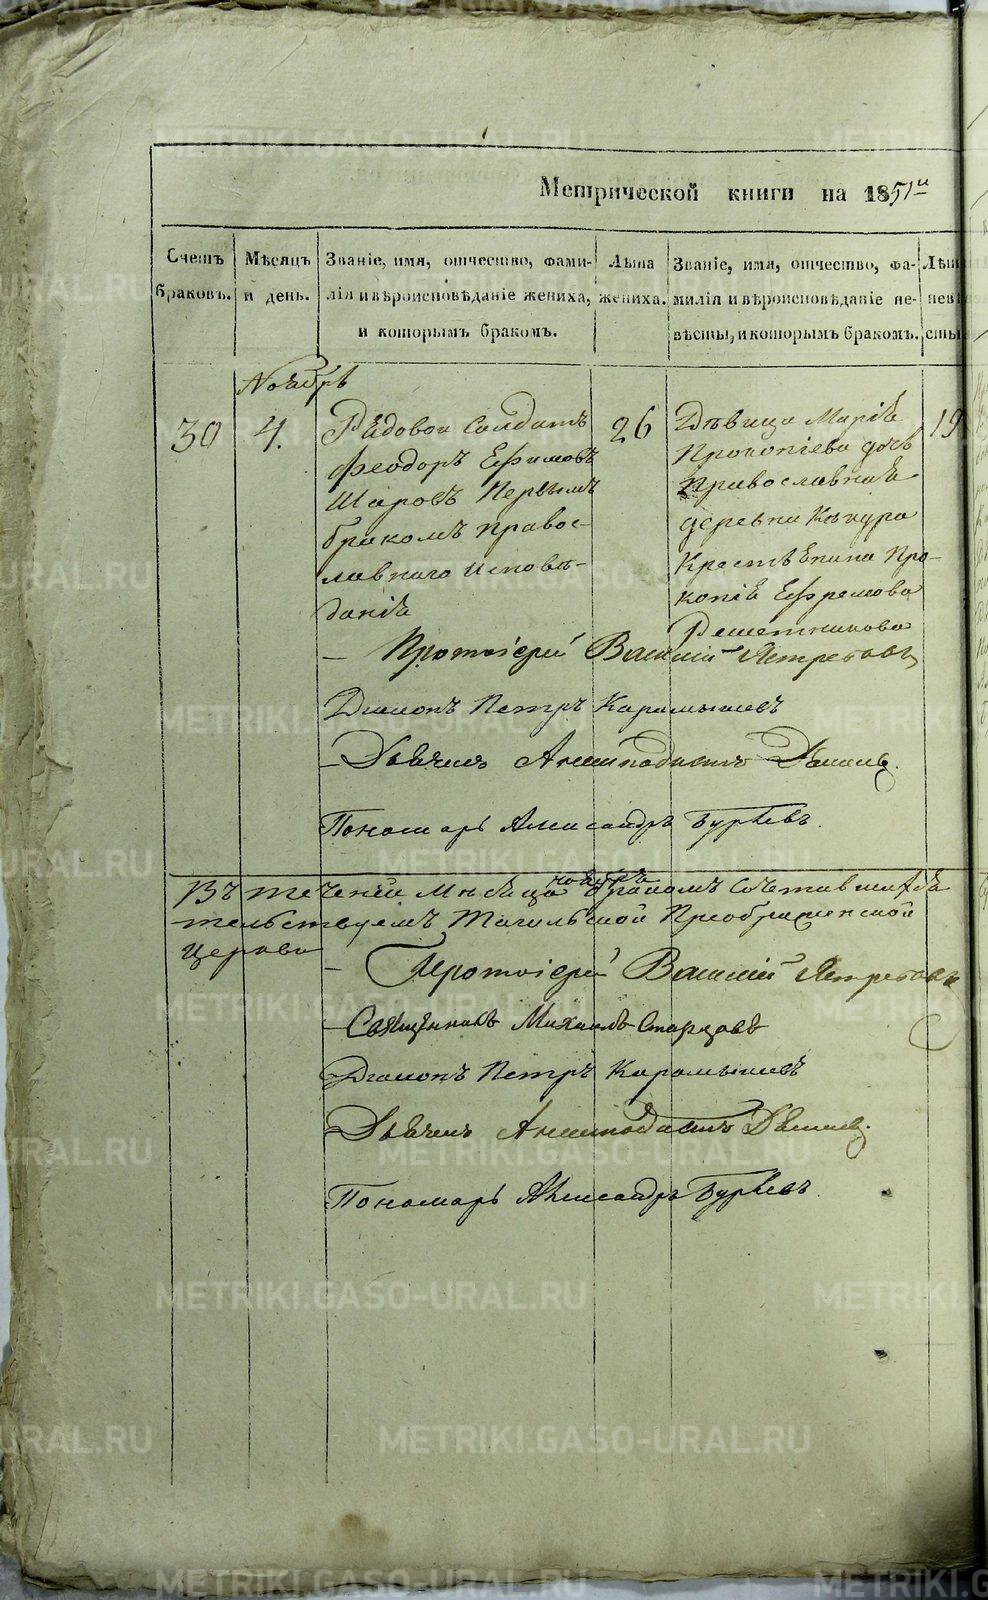 Метрической книги на 1851й
Счетъ браковъ.
Мѣсяцъ и день.
Званіе, имя, отчество, фами-
лія и вѣроисповѣданіе жениха,
и которымъ бракомъ.
Лѣта
жениха.
Званіе, имя, отчество, фа-
милія и вѣроисповѣданіе не-
вѣсты, и которымъ бракомъ.
Лѣта
невѣ
сты
Ноябрь
30
4.
Рядовои Салдатъ
Феодоръ Ефимовъ
Шаровъ Первымъ
бракомъ Правос-
лавнаго Исповѣ-
данія
26
Дѣвица Марія
Прокопіева дочь
Православная
деревни
Крестьянина Про-
копія Ефремова
Решетникова
19
Протоіерей Василій Ястребовъ
Діаконъ Петръ Карамышевъ
Дьячекъ
Пономарь Александръ Бурѣевъ
Въ теченіи Мѣсяца ноября бракомъ Сочетавшихся
тельствуемъ Тагильской Преображенской
Церкви
Протоіерей Василій Ястребовъ
Священникъ Михаилъ Старцовъ
Діаконъ Петръ Карамышевъ
Дьячекъ
Пономарь Александръ Бурѣевъ
METRIKI.GASO-URAL.RU